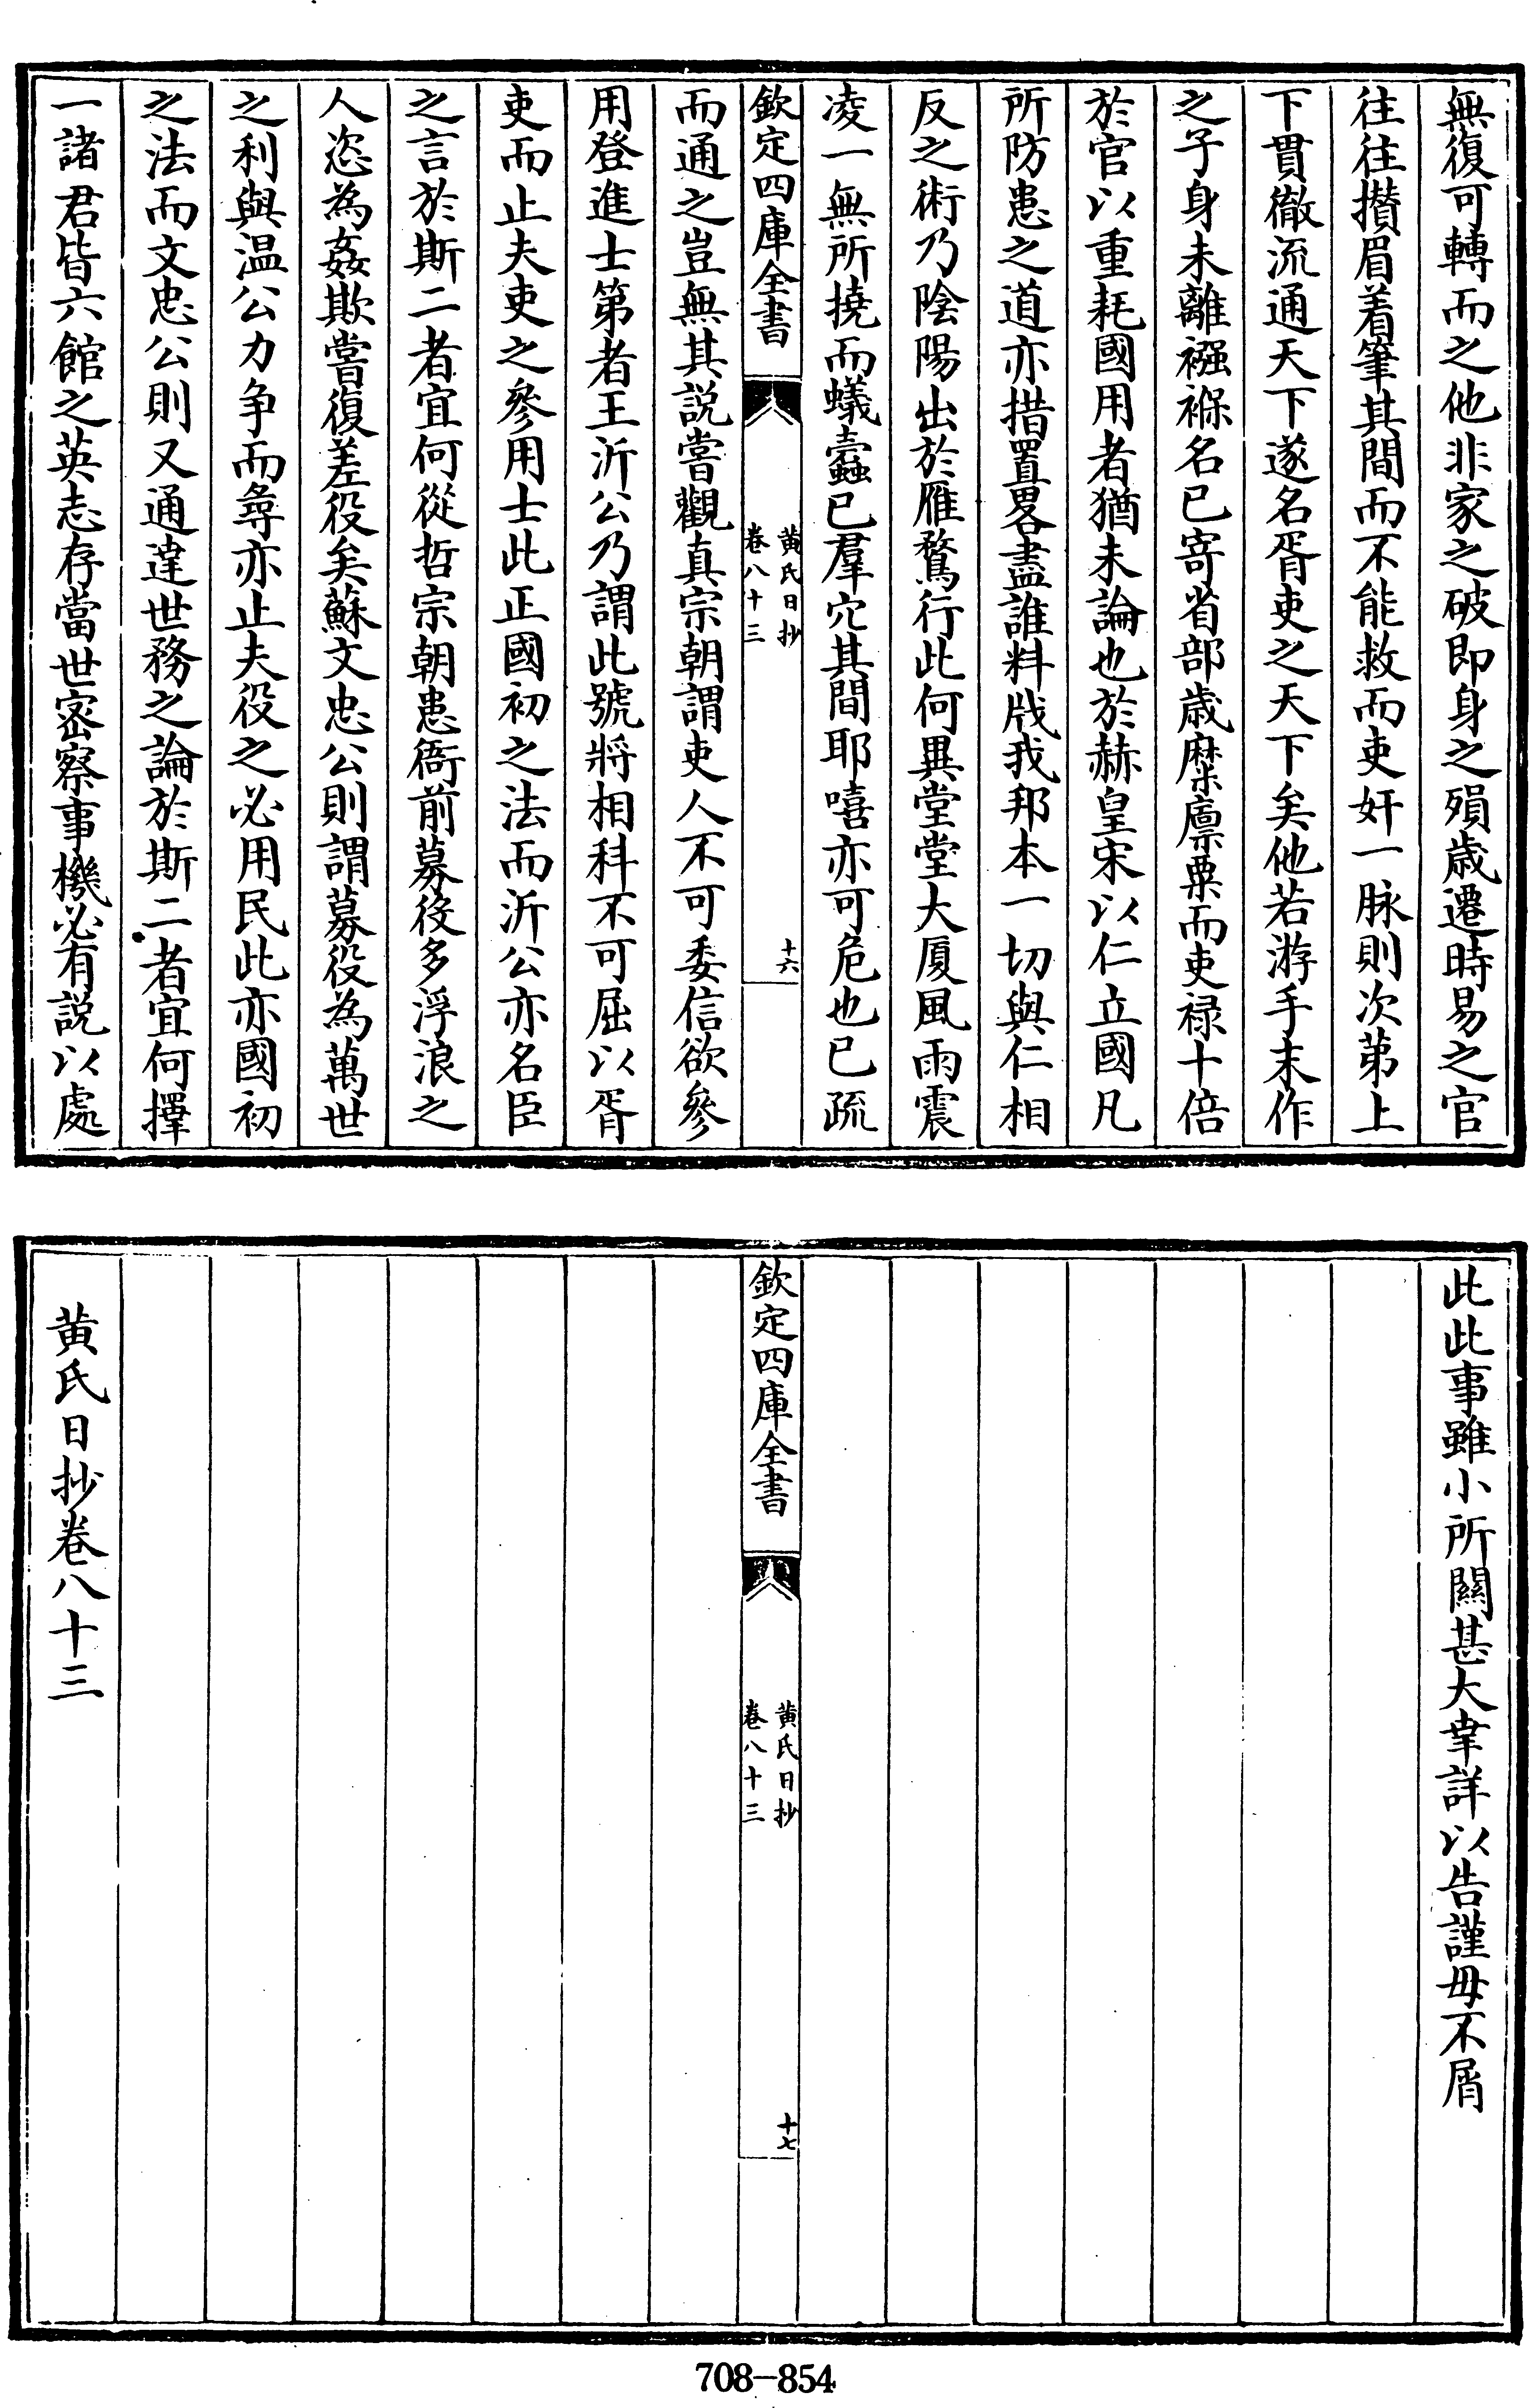 無復可轉而之他非家之破即身之殞歳遷時易之官
往往攢眉着筆其間而不能救而吏奸一脉則次第上
下貫徹流通天下遂名胥吏之天下矣他若游手末作
之子身未離襁褓名已寄省部歳糜廪粟而吏禄十倍
於官以重耗國用者猶未論也於赫皇宋以仁立國凡
所防患之道亦措置畧盡誰料戕我邦本一切與仁相
反之術乃陰陽出於雁鶩行此何異堂堂大厦風雨震
凌一無所撓而蟻蠧已羣穴其間耶嘻亦可危也已疏
欽定四庫全書
黄氏日抄
卷八十三
十六
而通之豈無其説嘗觀真宗朝謂吏人不可委信欲參
用登進士第者王沂公乃謂此號將相科不可屈以胥
吏而止夫吏之參用士此正國初之法而沂公亦名臣
之言於斯二者宜何從哲宗朝患衙前募役多浮浪之
人恣為姦欺嘗復差役矣蘇文忠公則謂募役為萬世
之利與温公力争而尋亦止夫役之必用民此亦國初
之法而文忠公則又通達世務之論於斯二者宜何擇
一諸君皆六館之英志存當世密察事機必有説以處
此此事雖小所關甚大幸詳以告謹毋不屑
欽定四庫全書
黄氏日抄
卷八十三
十七
黄氏日抄卷八十三
708-854